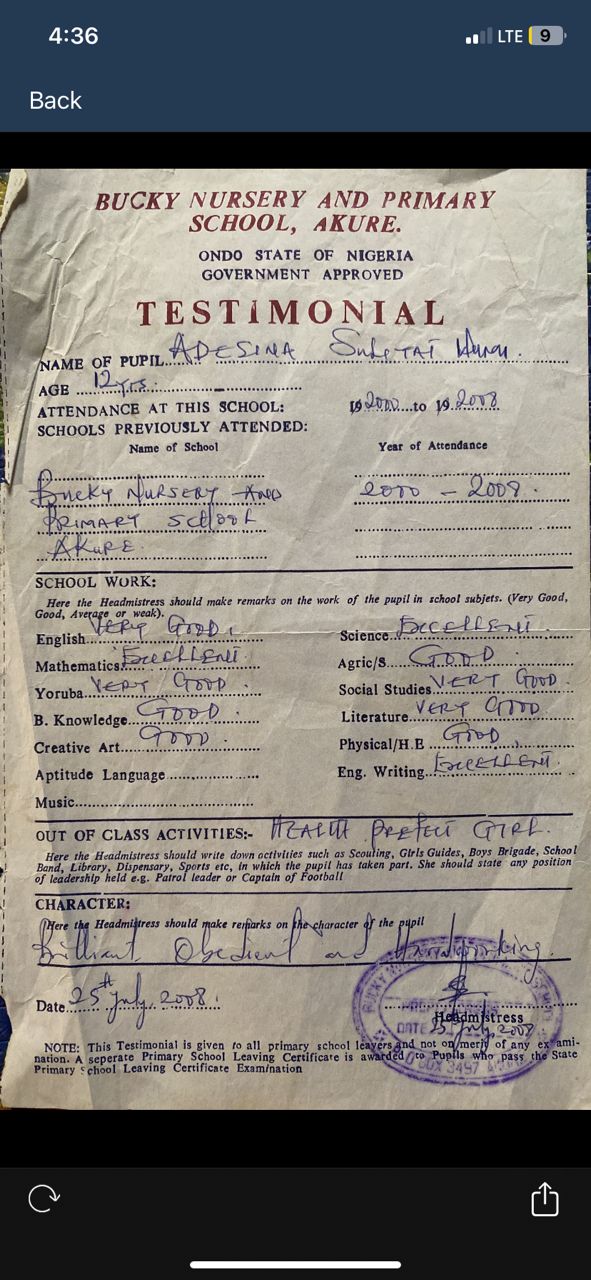 4:36
LTE 9
Back
BUCKY NURSERY AND PRIMARY
SCHOOL, AKURE.
ONDO STATE OF NIGERIA
GOVERNMENT APPROVED
TESTIMONIAL
NAME OF PUPIL ADESINA
AGE 12yrs.
ATTENDANCE AT THIS SCHOOL: 19 2000 to 19 2008
SCHOOLS PREVIOUSLY ATTENDED:
Name of School Year of Attendance
Bucky NURSERY AND 2000 - 2008.
PRIMARY SCHOOL
AKURE.
SCHOOL WORK:
Here the Headmistress should make remarks on the work of the pupil in school subjets. (Very Good,
Good, Average or weak).
English VERY GOOD. Science EXCELLENT.
Mathematics EXCELLENT. Agric/S. GOOD.
Yoruba VERY GOOD. Social Studies VERY GOOD.
B. Knowledge GOOD. Literature VERY GOOD
Creative Art GOOD. Physical/H.E GOOD.
Aptitude Language Eng. Writing EXCELLENT.
Music
OUT OF CLASS ACTIVITIES:- HEALTH PREFECT GIRL.
Here the Headmistress should write down activities such as Scouting, Girls Guides, Boys Brigade, School
Band, Library, Dispensary, Sports etc, in which the pupil has taken part. She should state any position
of leadership held e.g. Patrol leader or Captain of Football
CHARACTER:
Here the Headmistress should make remarks on the character of the pupil
Brilliant Obedient and Hardworking.
Date 25th July, 2008.
Headmistress
DATE 25 July, 2008
NOTE: This Testimonial is given to all primary school leavers and not on merit of any exami-
nation. A seperate Primary School Leaving Certificate is awarded to Pupils who pass the State
Primary School Leaving Certificate Examination
BOX 3497